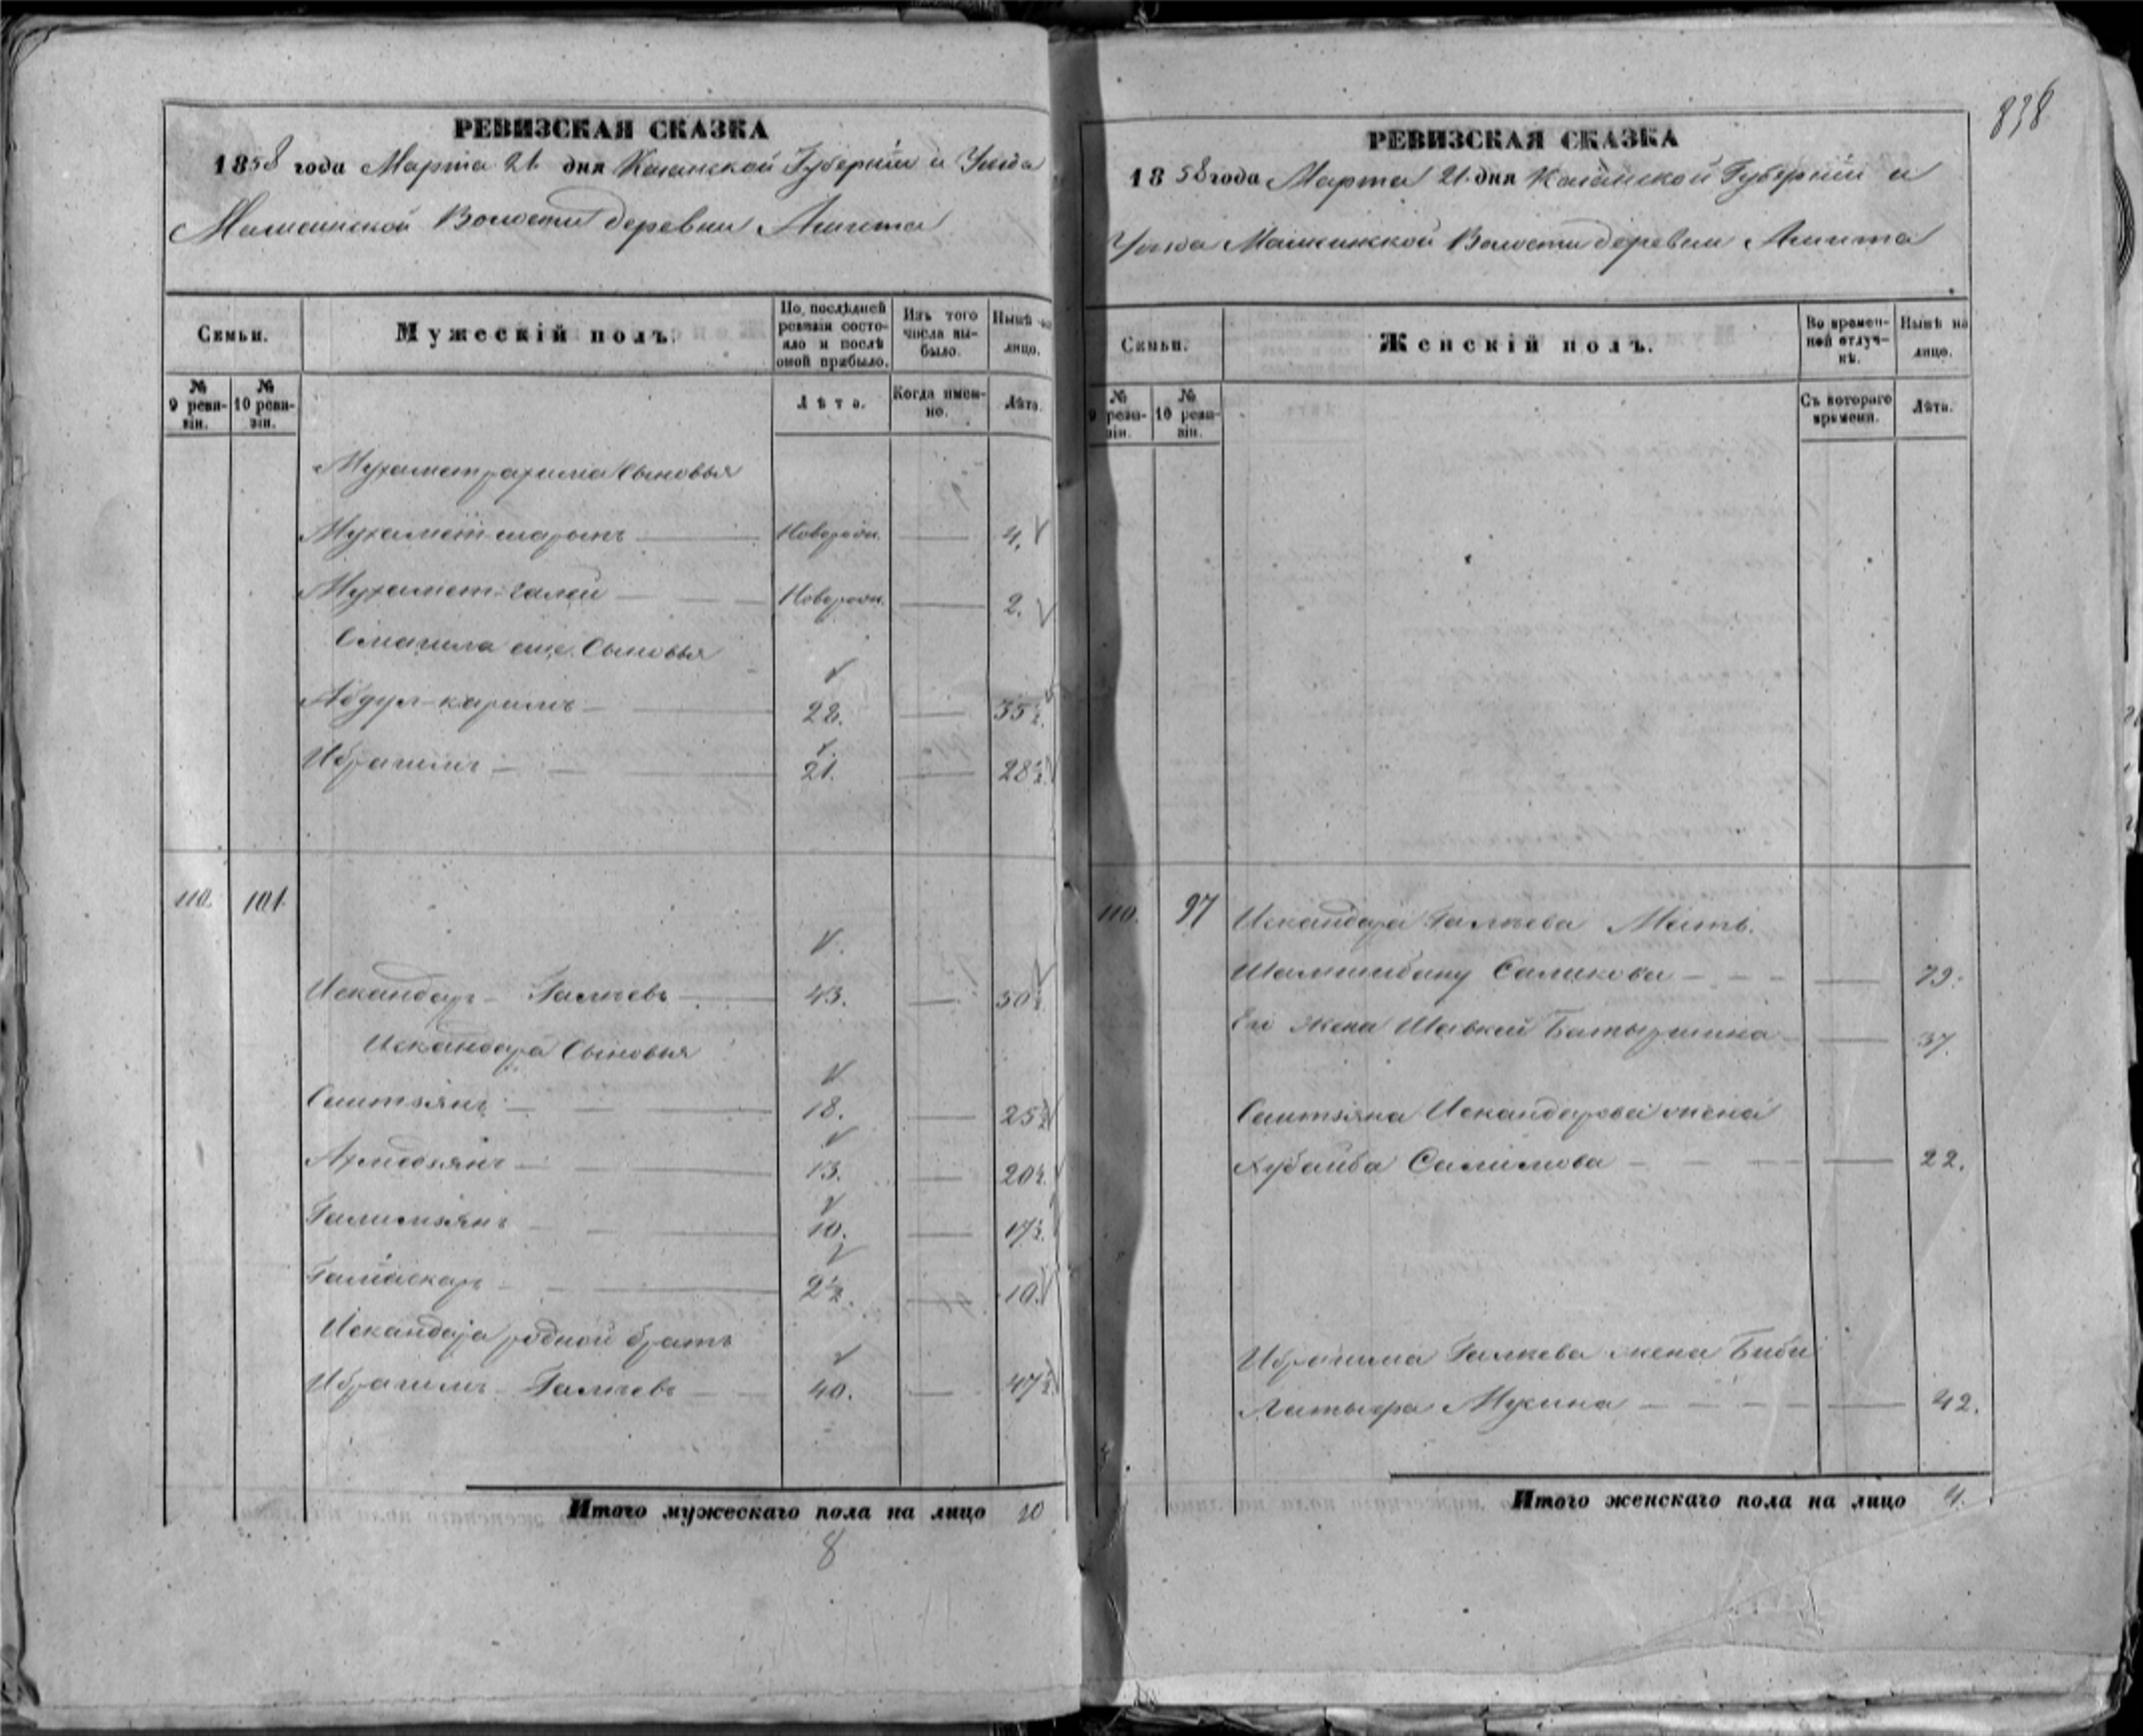 РЕВИЗСКАЯ СКАЗКА
1858 года Марта 21 дня Казанской Губерніи и Уѣзда
Машинской Волости деревни Апипта
Семьи.
Мужескій полъ.
По послѣдней ревизіи состояло и послѣ оной прибыло.
Изъ того числа выбыло.
Нынѣ на лицо.
№ 9 ревизіи.
№ 10 ревизіи.
Лѣта.
Когда именно.
Лѣта.
Мухаметрахима Сыновья
Мухаметшарыпъ Новорожд. 4.
Мухамет-галей Новорожд. 2.
Смагила еще Сыновья
Абдул-каримъ 28. 35½.
Ибрагимъ 21. 28½.
110 101
Искандаръ Галѣевъ 43. 50½
Искандара Сыновья
Саитзянъ 18. 25½
Ахмедзянъ 13. 20½.
Галимзянъ 10. 17½.
Галіаскаръ 2½. 10.
Искандара родной братъ
Ибрагимъ Галѣевъ 40. 47½.
Итого мужескаго пола на лицо 10
8
838
РЕВИЗСКАЯ СКАЗКА
1858 года Марта 21 дня Казанской Губерніи и
Уѣзда Машкинской Волости деревни Апипта
Семьи.
Женскій полъ.
Во временной отлучкѣ.
Нынѣ на лицо.
№ 9 ревизіи.
№ 10 ревизіи.
Съ котораго времени.
Лѣта.
110. 97 Искандара Галѣева Мать.
Шамшибану Саликова 79.
Его жена Шавкей Батыршина 37.
Саитзяна Искандарова жена
Хубайба Салимова 22.
Ибрагима Галѣева жена Биби
Латыфа Мусина 42.
Итого женскаго пола на лицо 4.